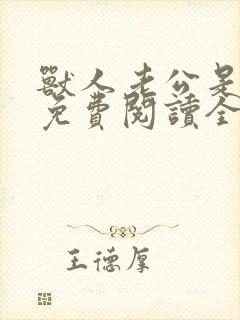 獸人老公是
免費閱讀全
王德厚